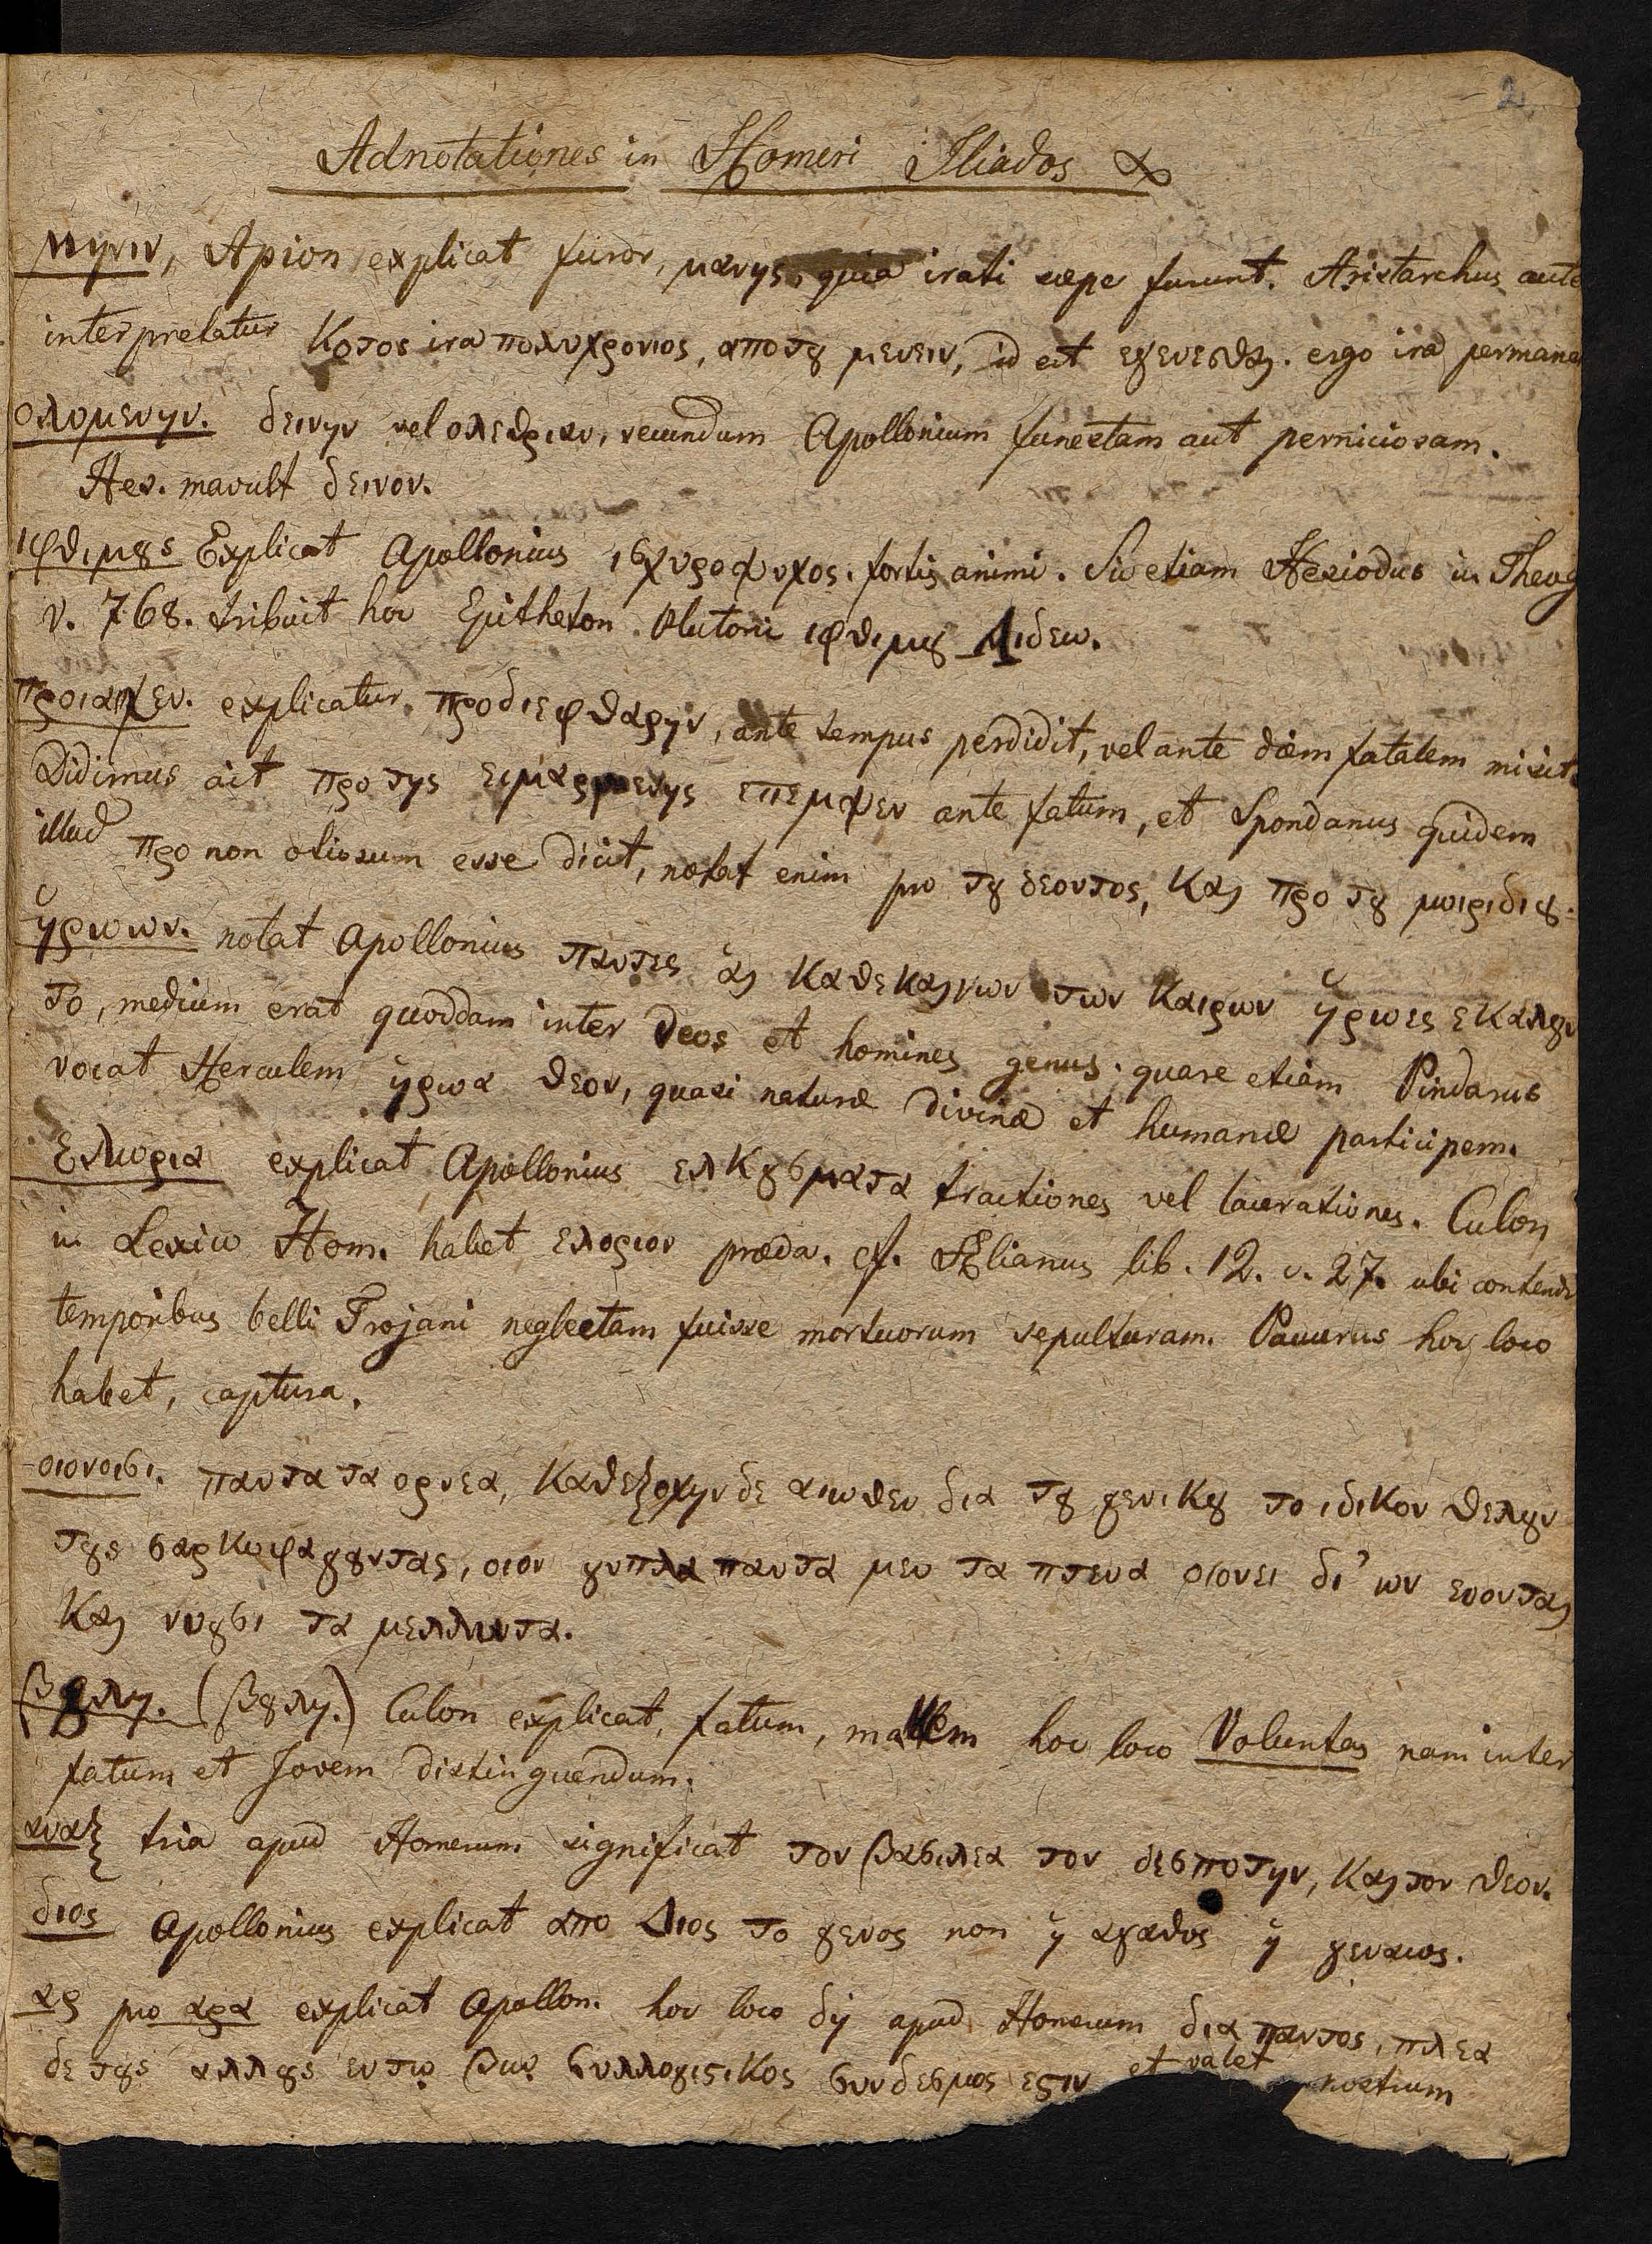 2
Adnotationes in Homeri Iliados α
μηνιν, Apion explicat furor, μανης, quia irati sæpe furunt. Aristarchus aute
interpretatur Κοτος ira πολυχρονιος, απο τȣ μενειν, id est  ergo ira permane
ολομενην. δεινην vel ολεθριαν, secundum Apollonium funestam aut perniciosam.
Hes. mavult δεινον.
ιφθιμȣς Explicat Apollonius ισχυροψυχος. fortis animi. Sic etiam Hesiodus in Theog
v. 768. tribuit hoc Epitheton Plutoni ιφθιμȣ Αιδεω.
προιαψεν. explicatur. προδιεφθαρην, ante tempus perdidit, vel ante diem fatalem misit.
Didimus ait προ της ειμαρμενης επεμψεν ante fatum, et Spondanus quidem
illud προ non otiosum esse dicit, notat enim pro τȣ δεοντος, Και προ τȣ μοιριδιȣ.
ηρωων. notat Apollonius παντες  των Καιρων ηρωες εκαλȣν
το, medium erat quoddam inter Deos et homines genus. quare etiam Pindarus
vocat Herculem ηρωα θεον, quasi naturæ divinæ et humanæ participem.
Ελωρια explicat Apollonius ελκȣσματα tractiones vel lacerationes. Culon
in Lexico Hom. habet ελοριον præda. cf. Ælianus lib. 12. c. 27. ubi contendi
temporibus belli Trojani neglectam fuisse mortuorum sepulturam. Pavurus hoc loco
habet, captura.
οιονοισι. παντα τα ορνεα, Καθεξοχην δε  δια τȣ γενικȣ το ιδικον θελȣν
τȣς σαρκοφαγȣντας, οιον  παντα μεν τα πτενα οιονει δι' ων
Και νοȣσι τα μελλοντα.
βȣλη. (βȣλη.) Culon explicat, fatum, mallem hoc loco Voluntas nam inter
fatum et Jovem distinguendum.
αναξ tria apud Homerum significat τον βασιλεα τον δεσποτην, και τον θεον.
διος Apollonius explicat απο Διος το γενος non η αγαθος η γεναιος.
αρ pro αρα explicat Apollon. hoc loco δη apud Homerum δια παντος, πλεα
δε τȣς αλλȣς εν τῳ βιῳ συλλογιϛικος συνδεσμος εϛιν et valet nostrum